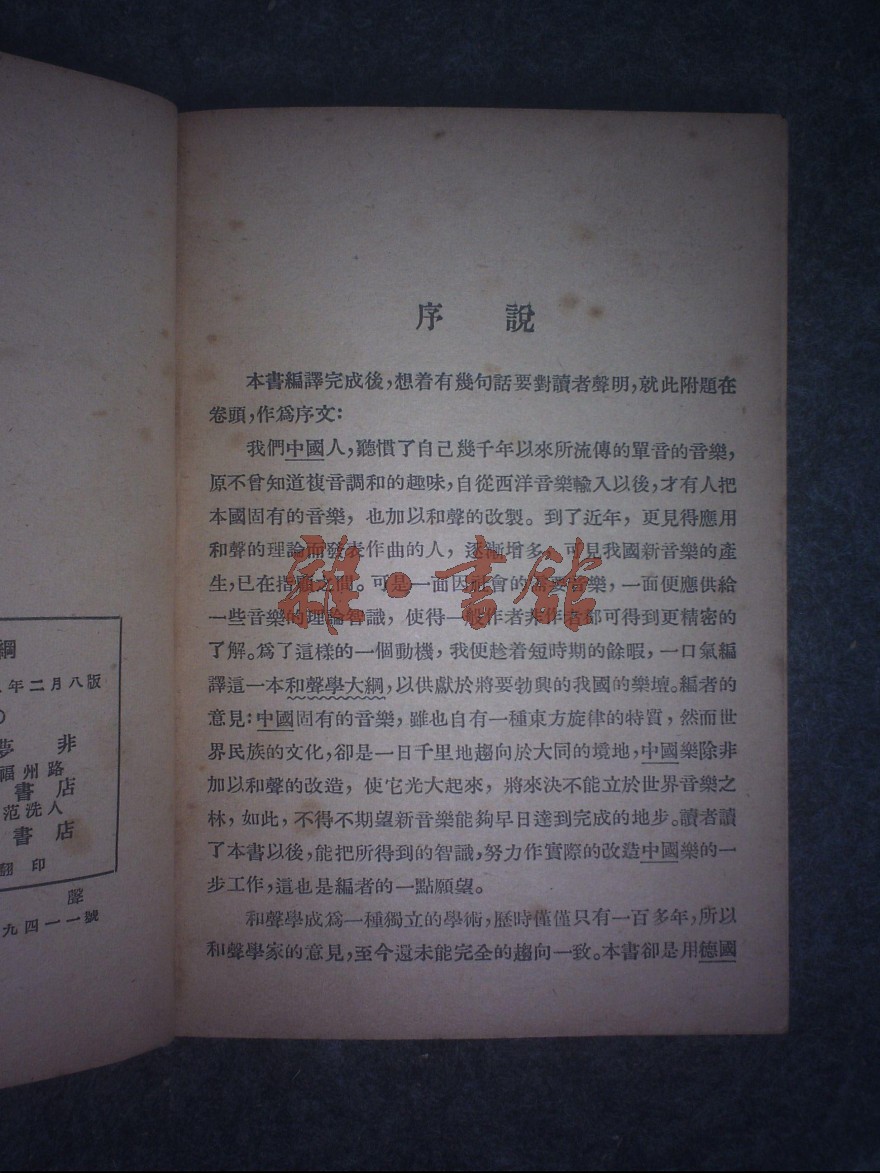 序說
本書編譯完成後,想着有幾句話要對讀者聲明,就此附題在
卷頭,作爲序文:
我們中國人,聽慣了自己幾千年以來所流傳的單音的音樂,
原不曾知道複音調和的趣味,自從西洋音樂輸入以後,才有人把
本國固有的音樂,也加以和聲的改製。到了近年,更見得應用
和聲的理論而發表作曲的人,逐漸增多,可見我國新音樂的產
生,已在指顧之間。可是一面因社會的需要音樂,一面便應供給
一些音樂的理論智識,使得一般作者非作者都可得到更精密的
了解。爲了這樣的一個動機,我便趁着短時期的餘暇,一口氣編
譯這一本和聲學大綱,以供獻於將要勃興的我國的樂壇。編者的
意見:中國固有的音樂,雖也自有一種東方旋律的特質,然而世
界民族的文化,卻是一日千里地趨向於大同的境地,中國樂除非
加以和聲的改造,使它光大起來,將來決不能立於世界音樂之
林,如此,不得不期望新音樂能夠早日達到完成的地步。讀者讀
了本書以後,能把所得到的智識,努力作實際的改造中國樂的一
步工作,這也是編者的一點願望。
和聲學成爲一種獨立的學術,歷時僅僅只有一百多年,所以
和聲學家的意見,至今還未能完全的趨向一致。本書卻是用德國
雜·書館
綱
年二月八版
夢非
福州路
書店
范洗人
書店
翻印
九四一一號